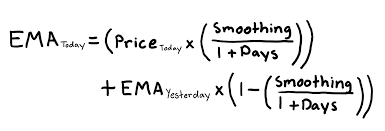 EMA Today = (Price Today x (Smoothing / 1 + Days))
+ EMA Yesterday x (1 - (Smoothing / 1 + Days))